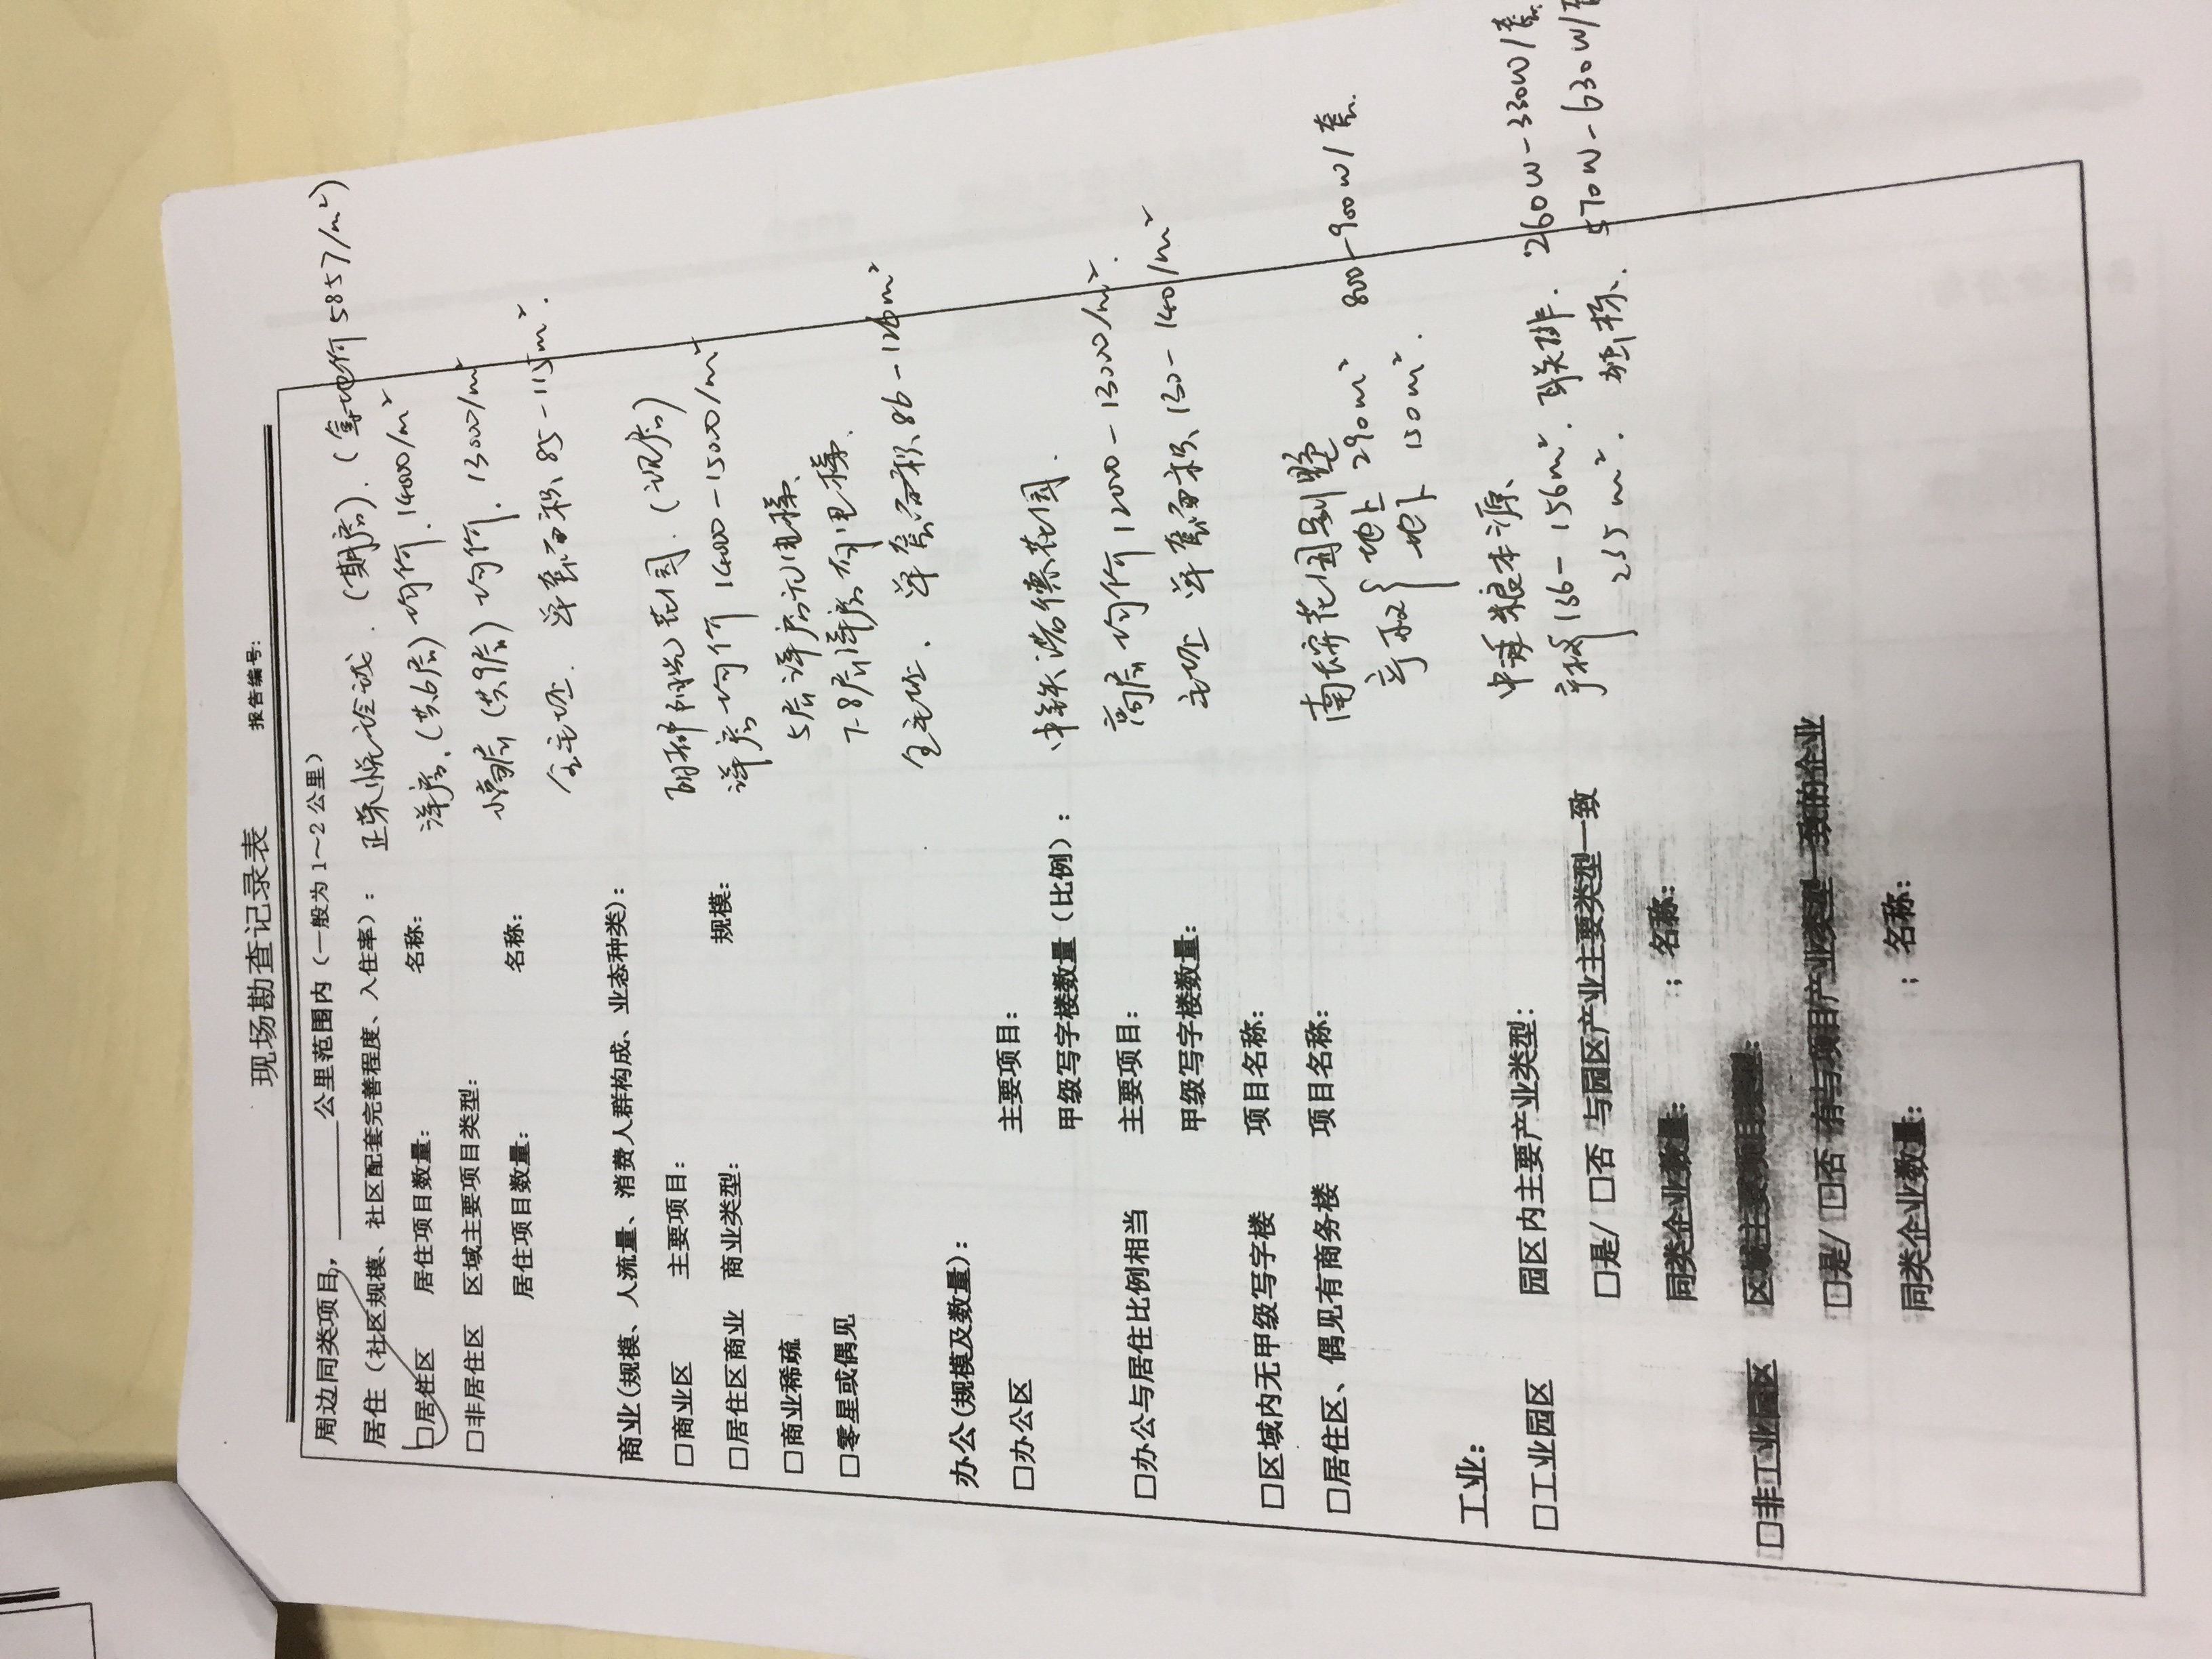 现场勘查记录表
报告编号:
周边同类项目,______公里范围内(一般为1~2公里)
居住(社区规模、社区配套完善程度、入住率): 正荣悦 (期房). (
地价5857/m²)
☑居住区 居住项目数量: 名称: 洋房.(共6层)均价.14000/m²
□非居住区 区域主要项目类型: 小高层(共9层)均价.13000/m²
居住项目数量: 名称:
全毛坯. 单套面积85-115m².
商业(规模、人流量、消费人群构成、业态种类):
□商业区 主要项目: 花园.(现房)
□居住区商业 商业类型: 规模: 洋房均价14000-15000/m²
□商业稀疏 5层洋房无电梯.
□零星或偶见 7-8层洋房有电梯.
全毛坯. 单套面积86-126m²
办公(规模及数量):
□办公区 主要项目: 中铁诺德花园.
甲级写字楼数量(比例): 高层均价12000-13000/m².
□办公与居住比例相当 主要项目: 毛坯 单套面积130-140/m²
甲级写字楼数量:
□区域内无甲级写字楼 项目名称:
□居住区、偶见有商务楼 项目名称: 花园别墅
产权{地上290m² 800-900w/套.
地下150m².
工业:
□工业园区 园区内主要产业类型: 本源、
□是/□否 与园区产业主要类型一致 产权{136-156m². 联排. 260w-330w/套.
235m². 独栋. 570w-630w/
同类企业数量: ;名称:
□非工业园区 区域主要项目类型:
□是/□否 有与项目产业类型一致的企业
同类企业数量: ;名称: